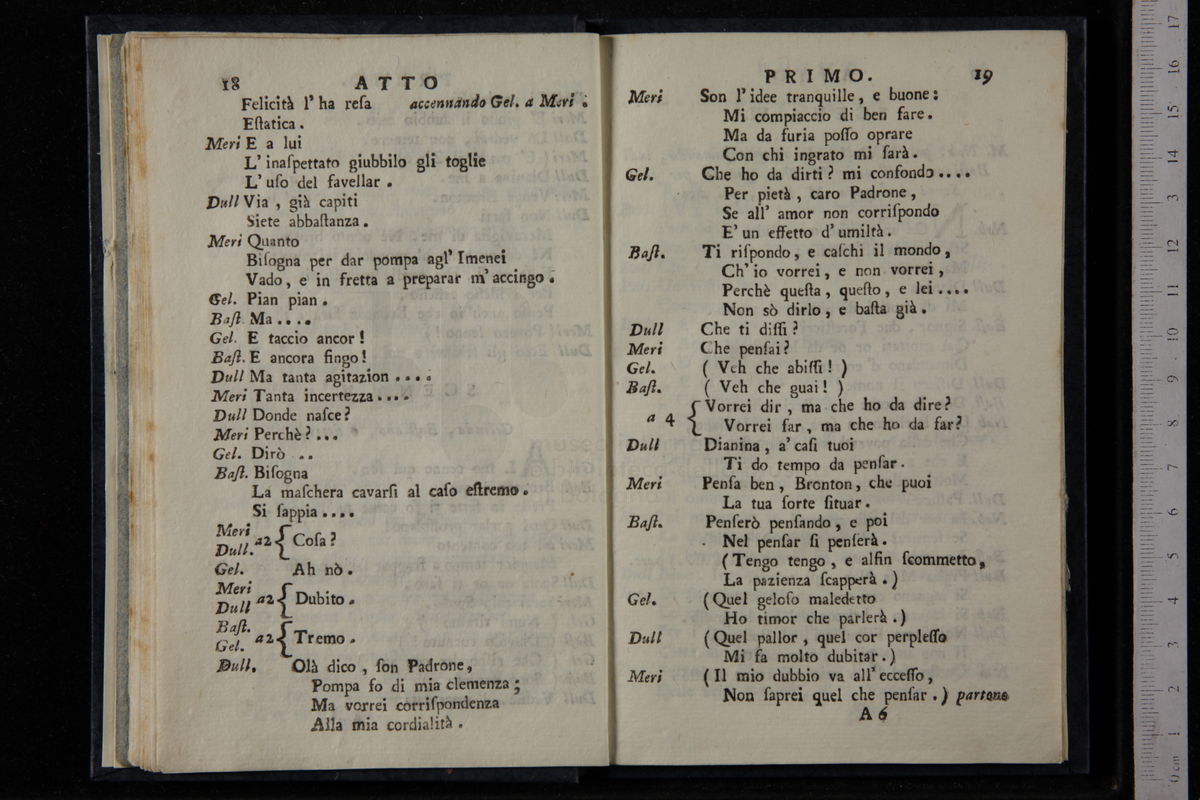 18 ATTO
Felicità l' ha reſa accennando Gel. a Meri .
Eſtatica .
Meri E a lui
L' inaſpettato giubbilo gli toglie
L' uſo del favellar .
Dull Via , già capiti
Siete abbaſtanza .
Meri Quanto
Biſogna per dar pompa agl' Imenei
Vado, e in fretta a preparar m' accingo .
Gel. Pian pian .
Baſt. Ma ....
Gel. E taccio ancor !
Baſt. E ancora fingo !
Dull Ma tanta agitazion ....
Meri Tanta incertezza ....
Dull Donde naſce ?
Meri Perchè ? ...
Gel. Dirò ..
Baſt. Biſogna
La maſchera cavarſi al caſo eſtremo .
Si ſappia ....
Meri
Dull. a2 { Coſa ?
Gel. Ah nò .
Meri
Dull a2 { Dubito .
Baſt.
Gel. a2 { Tremo .
Dull. Olà dico , ſon Padrone ,
Pompa fo di mia clemenza ;
Ma vorrei corriſpondenza
Alla mia cordialità .
PRIMO. 19
Meri Son l' idee tranquille , e buone :
Mi compiaccio di ben fare .
Ma da furia poſſo oprare
Con chi ingrato mi ſarà .
Gel. Che ho da dirti ? mi confondo ....
Per pietà , caro Padrone ,
Se all' amor non corriſpondo
E' un effetto d' umiltà .
Baſt. Ti riſpondo , e caſchi il mondo ,
Ch' io vorrei , e non vorrei ,
Perchè queſta , queſto , e lei ....
Non sò dirlo , e baſta già .
Dull Che ti diſſi ?
Meri Che penſai ?
Gel. ( Veh che abiſſi ! )
Baſt. ( Veh che guai ! )
a 4 { Vorrei dir , ma che ho da dire ?
Vorrei far , ma che ho da far ?
Dull Dianina , a' caſi tuoi
Ti do tempo da penſar .
Meri Penſa ben , Bronton , che puoi
La tua ſorte ſituar .
Baſt. Penſerò penſando , e poi
Nel penſar ſi penſerà .
( Tengo tengo , e alfin ſcommetto ,
La pazienza ſcapperà . )
Gel. ( Quel geloſo maledetto
Ho timor che parlerà . )
Dull ( Quel pallor , quel cor perpleſſo
Mi fa molto dubitar . )
Meri ( Il mio dubbio va all' ecceſſo ,
Non ſaprei quel che penſar . ) partono
A 6